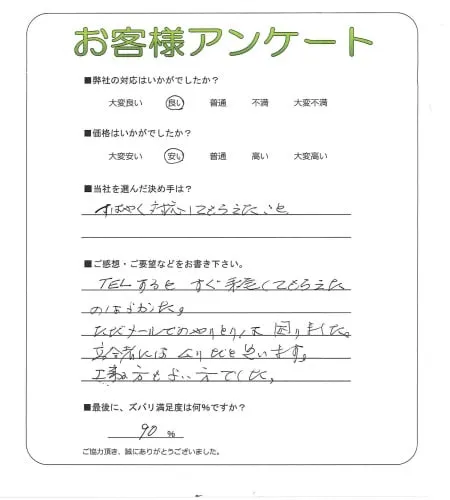 お客様アンケート
■弊社の対応はいかがでしたか?
大変良い 良い 普通 不満 大変不満
■価格はいかがでしたか?
大変安い 安い 普通 高い 大変高い
■当社を選んだ決め手は?
すばやく対応してもらえたこと
■ご感想・ご要望などをお書き下さい。
TELするとすぐ手配してもらえた
のはよかった。
ただメールでのやりとりは困りました。
立会者には と思います。
工事の方もよい方でした。
■最後に、ズバリ満足度は何%ですか?
90 %
ご協力頂き、誠にありがとうございました。